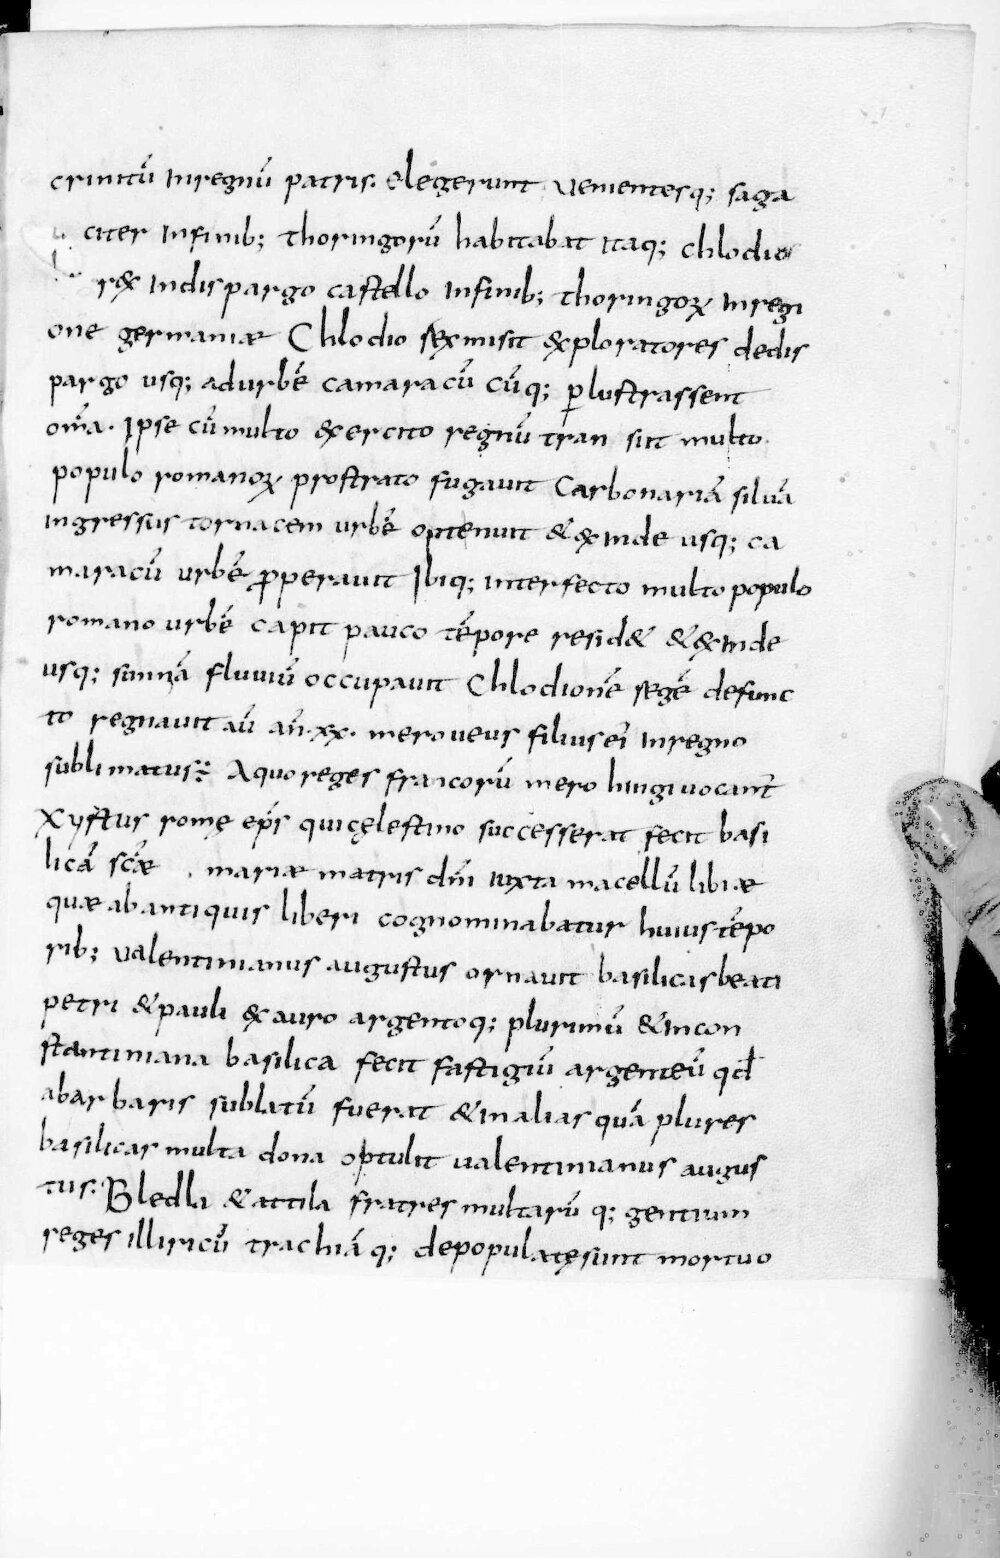 crinitū inregnū patris. elegerunt venientesq; saga
citer infinib; thoringorū habitabat itaq; chlodio
r&x indispargo castello infinib; thoringoꝝ inregi
one germaniae Chlodio sexmisit &xploratores dedis
pargo usq; adurbē camaracū cūq; ꝑlustrassent
om̄a. Ipse cūmulto &xercito regnū tran siit multo
populo romanoꝝ prostrato fugavit Carbonariā silvā
ingressus tornacem urbē optenuit & &xinde usq; ca
maracū urbē ꝓperavit Ibiq; interfecto multo populo
romano urbē capit pauco tēpore resid& & &xinde
usq; sumnā fluviū occupavit Chlodionē segē defunc
to regnavit aū an̄.xx. meroveus filius ei inregno
sublimatus; Aquoreges francorū mero hingi vocant̄
Xyſtus romę ep̄s quicęlestino successerat fecit basi
licā sc̄ae mariae matris dn̄i iuxta macellū libiae
quae abantiquis liberi cognominabatur huius tēpo
rib; valentinianus augustus ornavit basilicas beati
petri & pauli &x auro argentoq; plurimū & incon
stantiniana basilica fecit fastigiū argenteū qd̄
abarbaris sublatū fuerat & inalias quā plures
basilicas multa dona optulit valentinianus augus
tus. Bledla & attila fratres multarū q; gentium
reges illiricū trachiā q; depopulatęsunt mortuo